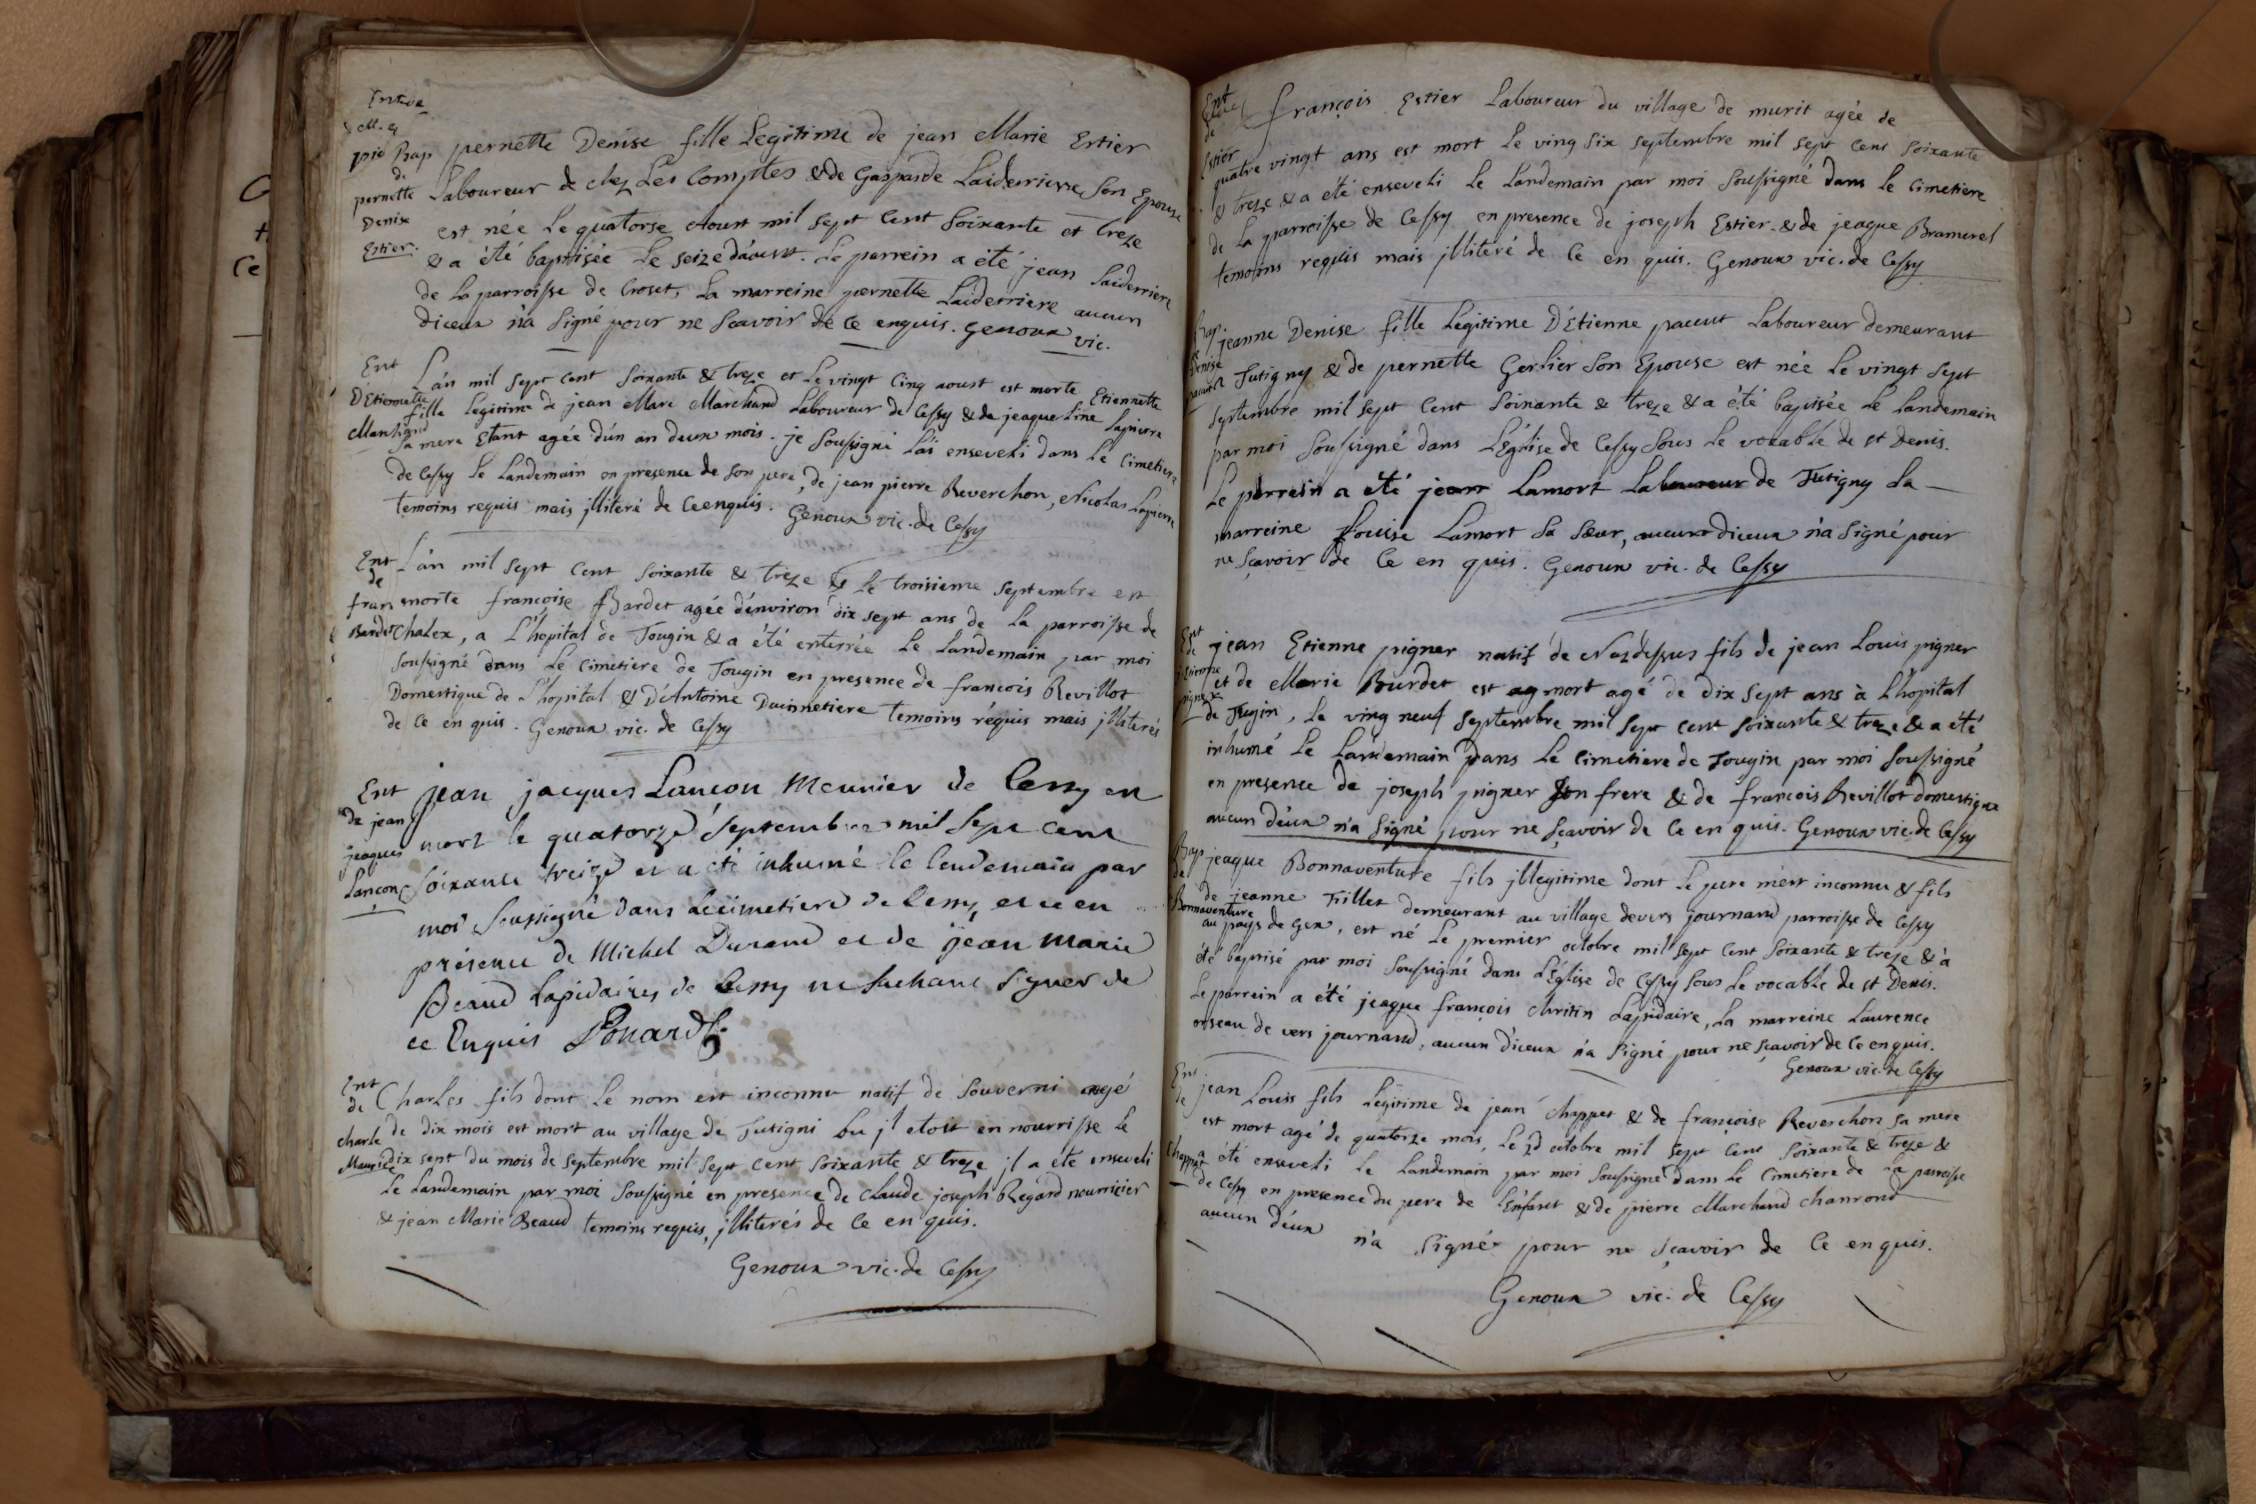 Bap
de
pernette
Denise
Estier.
pernette Denise fille Legitime de jean Marie Estier
Laboureur de chez Les Comptes & de Gasparde Laiderriere, son Epouse
est née Le quatorse Aoust mil sept Cent Soixante et treze
& a été baptisée Le seize d'aoust. Le parrein a été jean Laiderriere
de la parroisse de Croset, La marreine pernette Laiderriere aucun
diceux n'a signé pour ne scavoir de ce enquis. Genoux vic.
Ent
D'Etiennette
Marchand
L'an mil sept cent soixante & treze et Le vingt Cinq aoust est morte Etiennette
fille Legitime de jean Marc Marchand Laboureur de Cessy & de jeaqueline Lapierre
sa mere Etant agée d'un an deux mois. je soussigné L'ai enseveli dans Le Cimetiere
de Cessy Le Landemain en presence de son pere, de jean pierre Reverchon, Nicolas Lapierre
temoins requis mais jlliteré de Ce enquis. Genoux vic. de Cessy
Ent
de
fran
Bardet
L'an mil sept Cent soixante & treze & Le troisieme septembre est
morte francoise Bardet agée d'environ dix sept ans de La parroisse de
Chalex, a L'hopital de Tougin & a été enterrée Le Landemain par moi
soussigné dans Le Cimetiere de Tougin en presence de francois Revillot
Domestique de L'hopital & D'Antoine Duinnetiere temoins requis mais jlliterés
de Ce en quis. Genoux vic. de Cessy
Ent
de jean
jeaques
Lançon
jean jacques Lançon Meunier de Cessy est
mort le quatorze septembre mil sept cent
soixante treize et a eté inhumé le lendemain par
moi soussigné dans le cimetiere de Cessy, et ce en
présence de Michel Durand et de jean Marie
Beaud Lapidaires de Cessy ne sachant signer de
ce Enquis Ponard
Ent
de
Charle
Charles fils dont Le nom est inconnu natif de Souverni agé
de dix mois est mort au village de Tutigni ou jl etoit en nourrisse Le
dix sept du mois de septembre mil sept cent soixante & treze jl a été enseveli
Le Landemain par moi soussigné en presence de Claude joseph Regard nourricier
& jean Marie Beaud temoins requis, jlliterés de Ce en quis.
Genoux vic. de Cessy
Ent
de
Estier
françois Estier Laboureur du village de murit agée de
quatre vingt ans est mort Le ving six septembre mil sept Cent soixante
& treze & a été enseveli Le Landemain par moi soussigné dans Le Cimetiere
de La parroisse de Cessy en presence de joseph Estier & de jeaque Bramerel
temoins requis mais jlliteré de Ce en quis. Genoux vic. de Cessy
Bap
Denise
jeanne Denise fille Legitime D'Etienne paccut Laboureur demeurant
Tutigny & de pernette Gerlier son Epouse est née Le vingt sept
septembre mil sept Cent soixante & treze & a été baptisée Le Landemain
par moi soussigné dans L'Eglise de Cessy sous Le vocable de st Denis.
Le parrein a été jean Lamort Laboureur de Tutigny La
marreine Louise Lamort sa sœur, aucun diceux n'a signé pour
ne sçavoir de Ce en quis. Genoux vic. de Cessy
Ent
de
jean Etienne pigner natif de Nazdessus fils de jean Louis pigner
et de Marie Burdet est mort agé de dix sept ans à L'hopital
de Tugin, Le ving neuf septembre mil sept cent soixante & treze & a été
inhumé Le Landemain dans Le Cimetiere de Tougin par moi soussigné
en presence de joseph pigner son frere & de francois Revillot domestique
aucun d'eux n'a signé pour ne sçavoir de Ce en quis. Genoux vic. de Cessy
Bap
de
Bonnaventure
jeaque Bonnaventure fils jllegitime dont Le pere m'est inconnu & fils
de jeanne Tillet demeurant au village devers journand parroisse de Cessy
au pays de Gex, est né Le premier octobre mil sept Cent soixante & treze & a
été baptisé par moi soussigné dans L'Eglise de Cessy sous Le vocable de st Denis.
Le parrein a été jeaque françois Chritin Lapidaire, La marreine Laurence
oiseau de vers journand, aucun d'iceux n'a signé pour ne sçavoir de Ce enquis.
Genoux vic. de Cessy
Ent
de
Chappet
jean Louis fils Legitime de jean Chappet & de françoise Reverchon sa mere
est mort agé de quatorze mois, Le 2d octobre mil sept Cent soixante & treze &
a été enseveli Le Landemain par moi soussigné dans Le Cimetiere de La parroisse
de Cessy en presence du pere de L'Enfant & de pierre Marchand Chanrond
aucun d'eux n'a signé pour ne sçavoir de Ce enquis.
Genoux vic. de Cessy